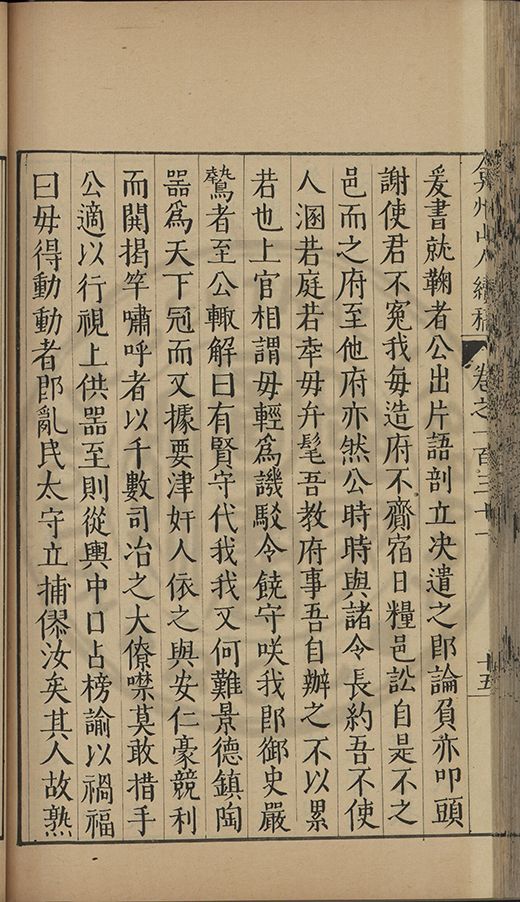 弇州山人續稿 卷之一百三十一 十五
爰書就鞠者公出片語剖立決遣之卽論負亦叩頭
謝使君不冤我每造府不齎宿日糧邑訟自是不之
邑而之府至他府亦然公時時與諸令長約吾不使
人溷若庭若幸毋弁髦吾教府事吾自辦之不以累
若也上官相謂毋輕爲譏駁令饒守咲我卽御史嚴
鷙者至公輙解曰有賢守代我我又何難景德鎮陶
噐爲天下冠而又據要津奸人依之與安仁豪競利
而鬨揭竿嘯呼者以千數司冶之大僚噤莫敢措手
公適以行視上供噐至則從輿中口占榜諭以禍福
曰毋得動動者卽亂民太守立捕僇汝矣其人故熟